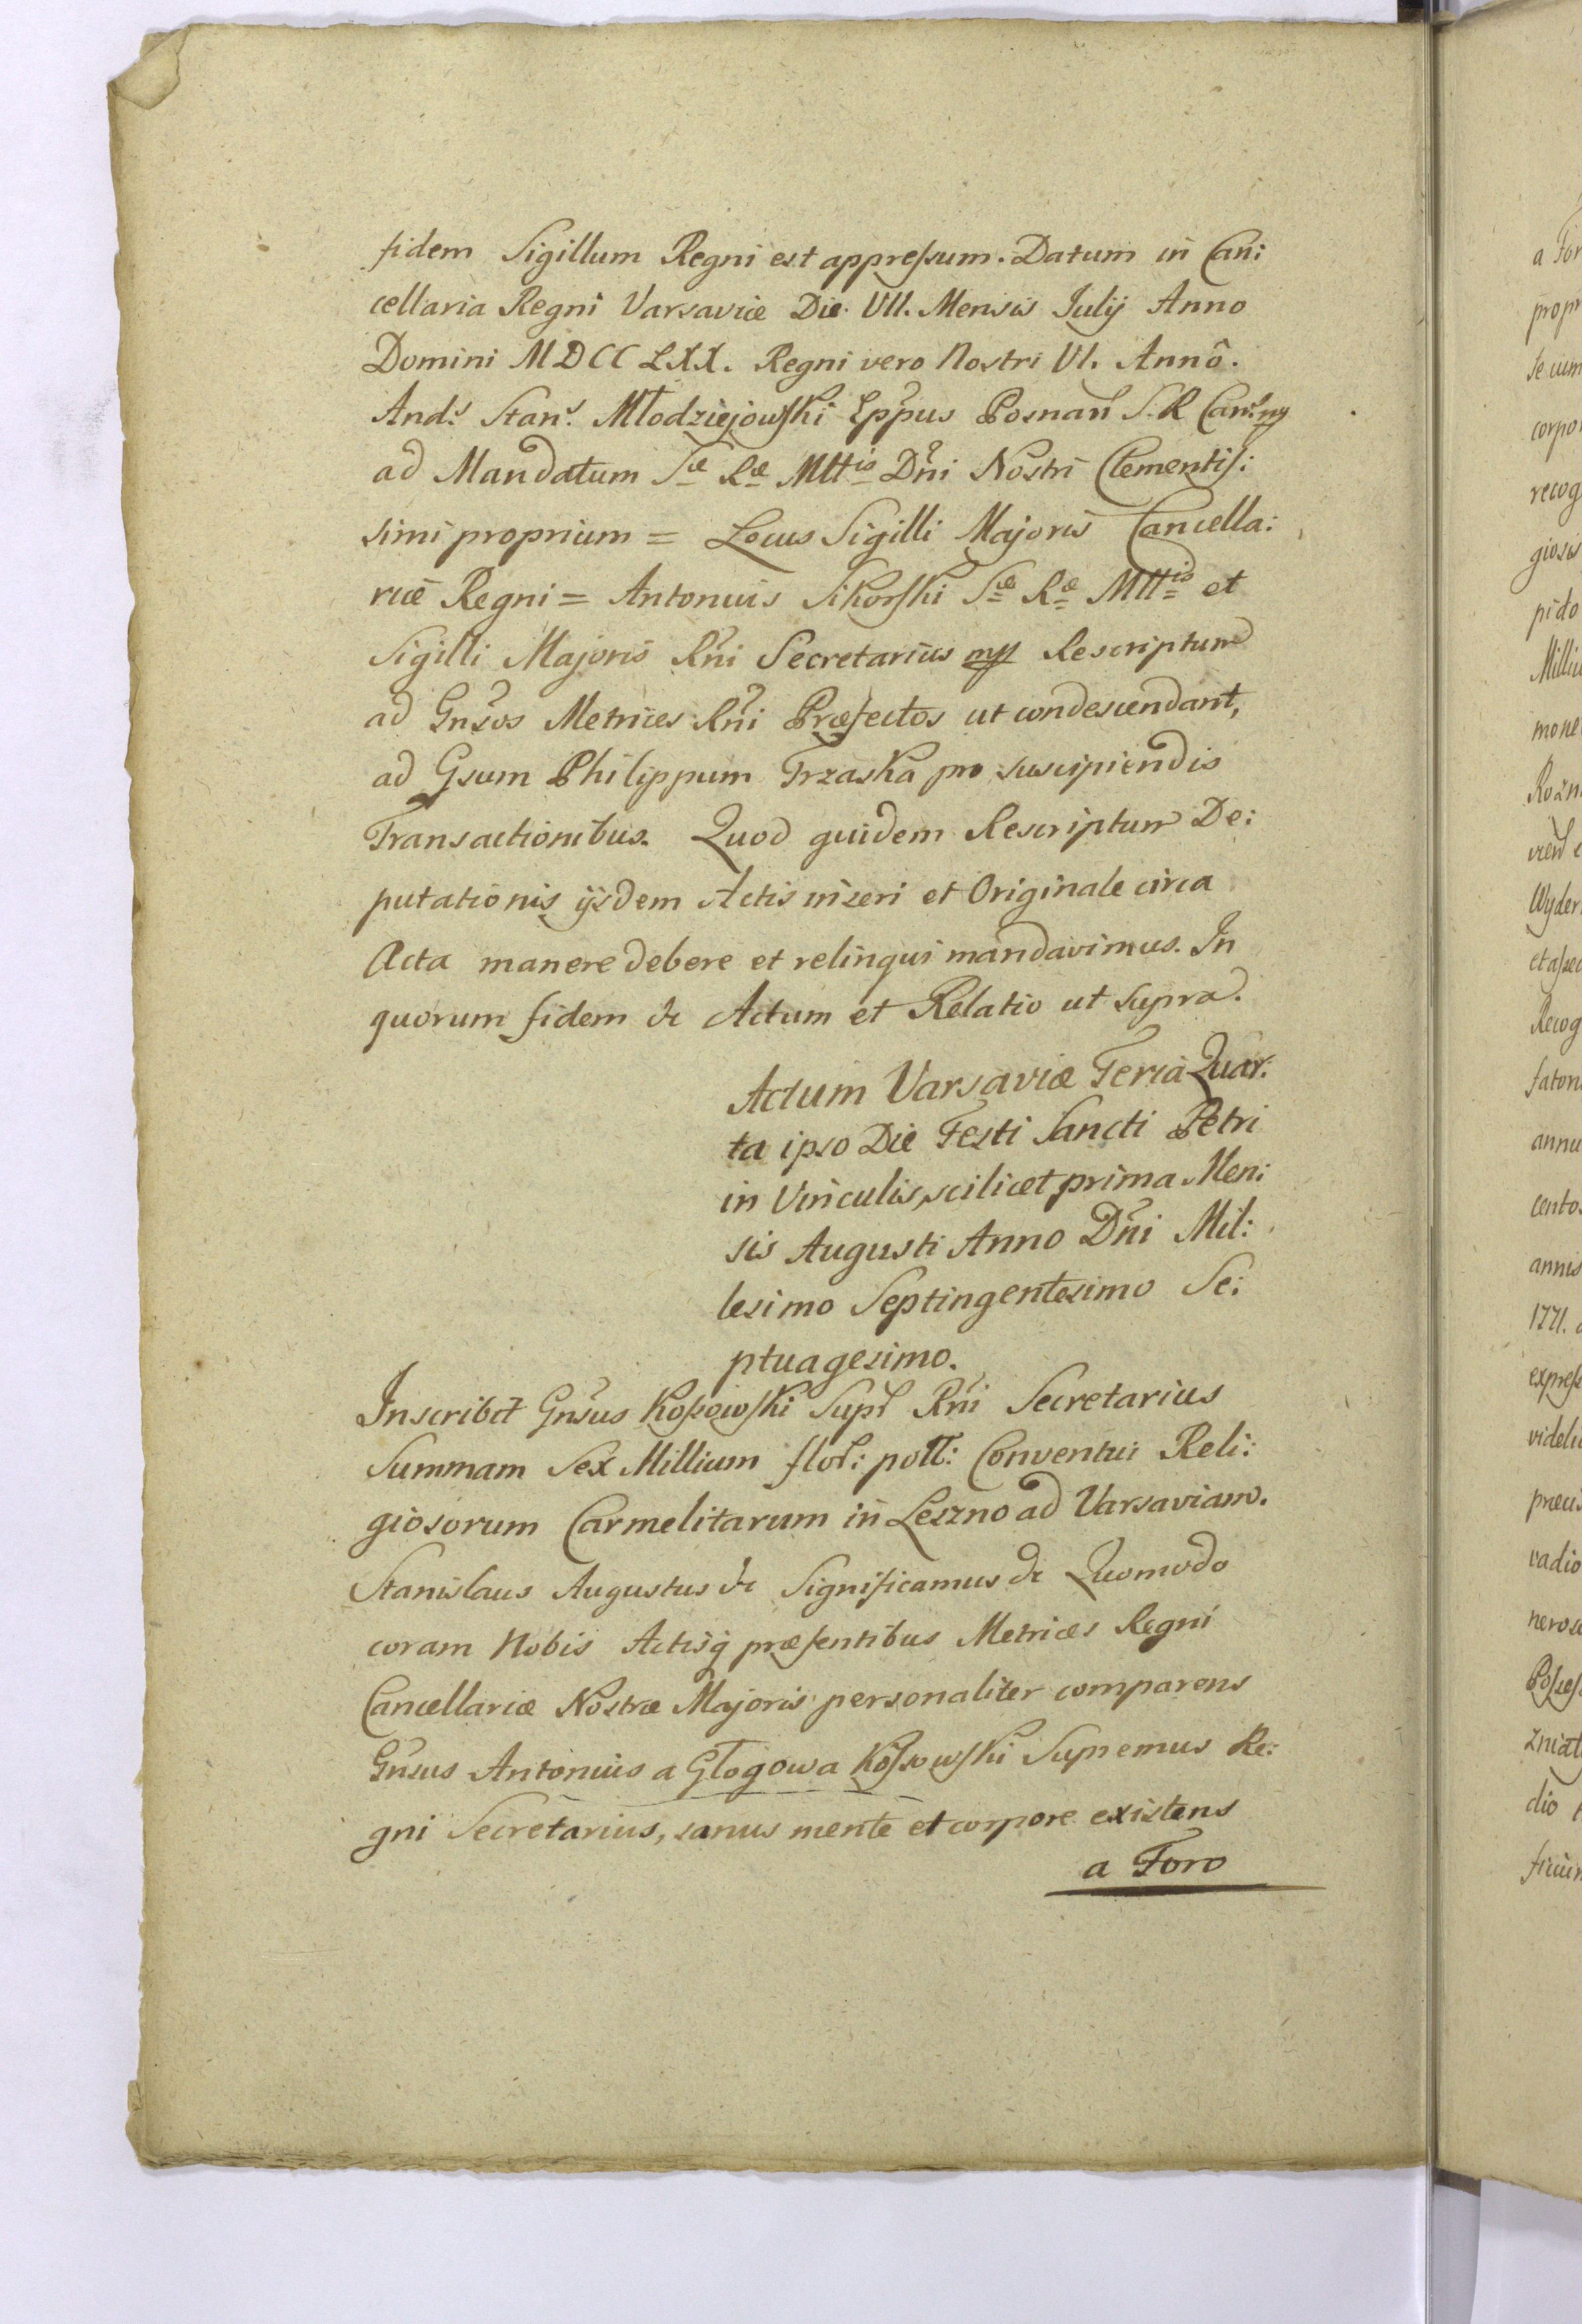 fidem Sigillum Regni est appreſsum. Datum in Can:
cellaria Regni Varsaviæ Die VII. Mensis Julij Anno
Domini MDCCLXX. Regni vero Nostri VI. Annô.
And: Stan: Młodziejowſki Eppus Posnan S. R. Can: mp
ad Mandatum Sæ Ræ Mttis Dni Nostri Clementiſ:
simi proprium = Locus Sigilli Majoris Cancella:
riæ Regni = Antonius Sikorſki Sæ Ræ Mttis et
Sigilli Majoris Rni Secretarius mp Rescriptum
ad Gnsos Metrices Rni Præfectos ut condescendant,
ad Gsum Philippum Trzaska pro suscipiendis
Transactionibus. Quod quidem Rescriptum De:
putationis ijsdem Actis inseri et Originale circa
Acta manere debere et relinqui mandavimus. In
quorum fidem &c Actum et Relatio ut supra.
Actum Varsaviæ Feria Quar:
ta ipso Die Festi Sancti Petri
in Vinculis, scilicet prima Men:
sis Augusti Anno Dni Mil:
lesimo Septingentesimo Se:
ptuagesimo.
Inscribit Gnsus Koſsowſki Supr Rni Secretarius
Summam Sex Millium flor: poll: Conventui Reli:
giosorum Carmelitarum in Leszno ad Varsaviam.
Stanislaus Augustus &c Significamus &c Quomodo
coram Nobis Actisq præſentibus Metrices Regni
Cancellariæ Nostræ Majoris personaliter comparens
Gnsus Antonius a Głogowa Koſsowſki Supremus Re:
gni Secretarius, sanus mente et corpore existens
a Foro